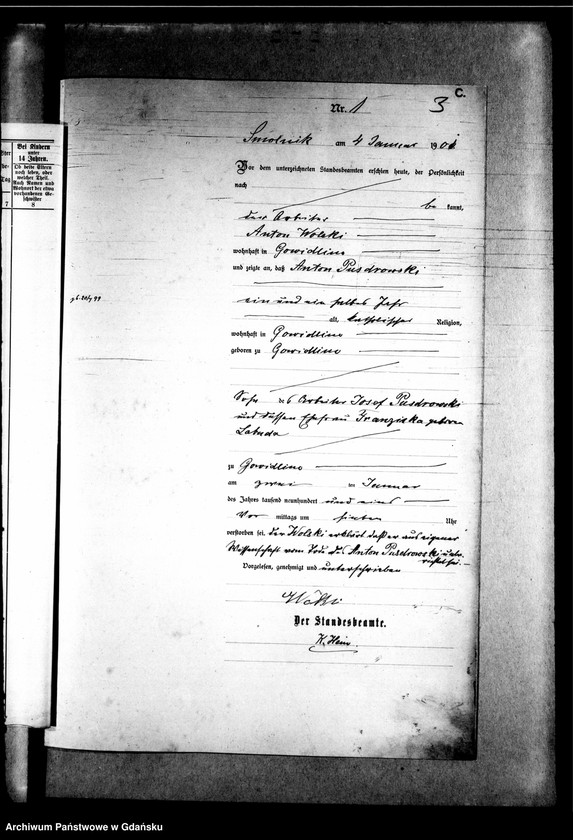 C.
Nr. 1
3
Smolnik am 4 Januar 1901
Vor dem unterzeichneten Standesbeamten erschien heute, der Persönlichkeit
nach
be kannt,
der Arbeiter
Anton Wolski
wohnhaft in Gowidlino
und zeigte an, daß Anton Pusdrowski
ein und ein halbes Jahr
alt, katholischer Religion,
wohnhaft in Gowidlino
geboren zu Gowidlino
Sohn des Arbeiter Josef Pusdrowski
und dessen Ehefrau Franziska geboren
Labuda
zu Gowidlino
am zwei ten Januar
des Jahres tausend neunhundert und eins
Vor mittags um sieben Uhr
verstorben sei. Der Wolski erklärt daß er aus eigener
Wissenschaft vom Tode des Anton Pusdrowski unter-
richtet sei.
Vorgelesen, genehmigt und unterschrieben
Wolski
Der Standesbeamte.
K. Hein
Bei Kindern
unter
14 Jahren.
Ob beide Eltern
noch leben, oder
welcher Theil.
Auch Namen und
Wohnort der etwa
vorhandenen Ge-
schwister
Tag
7
8
Archiwum Państwowe w Gdańsku